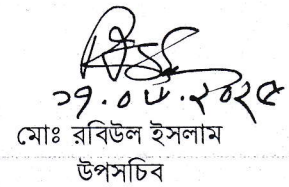 ১৭.০৮.২০২৫
মোঃ রবিউল ইসলাম
উপসচিব